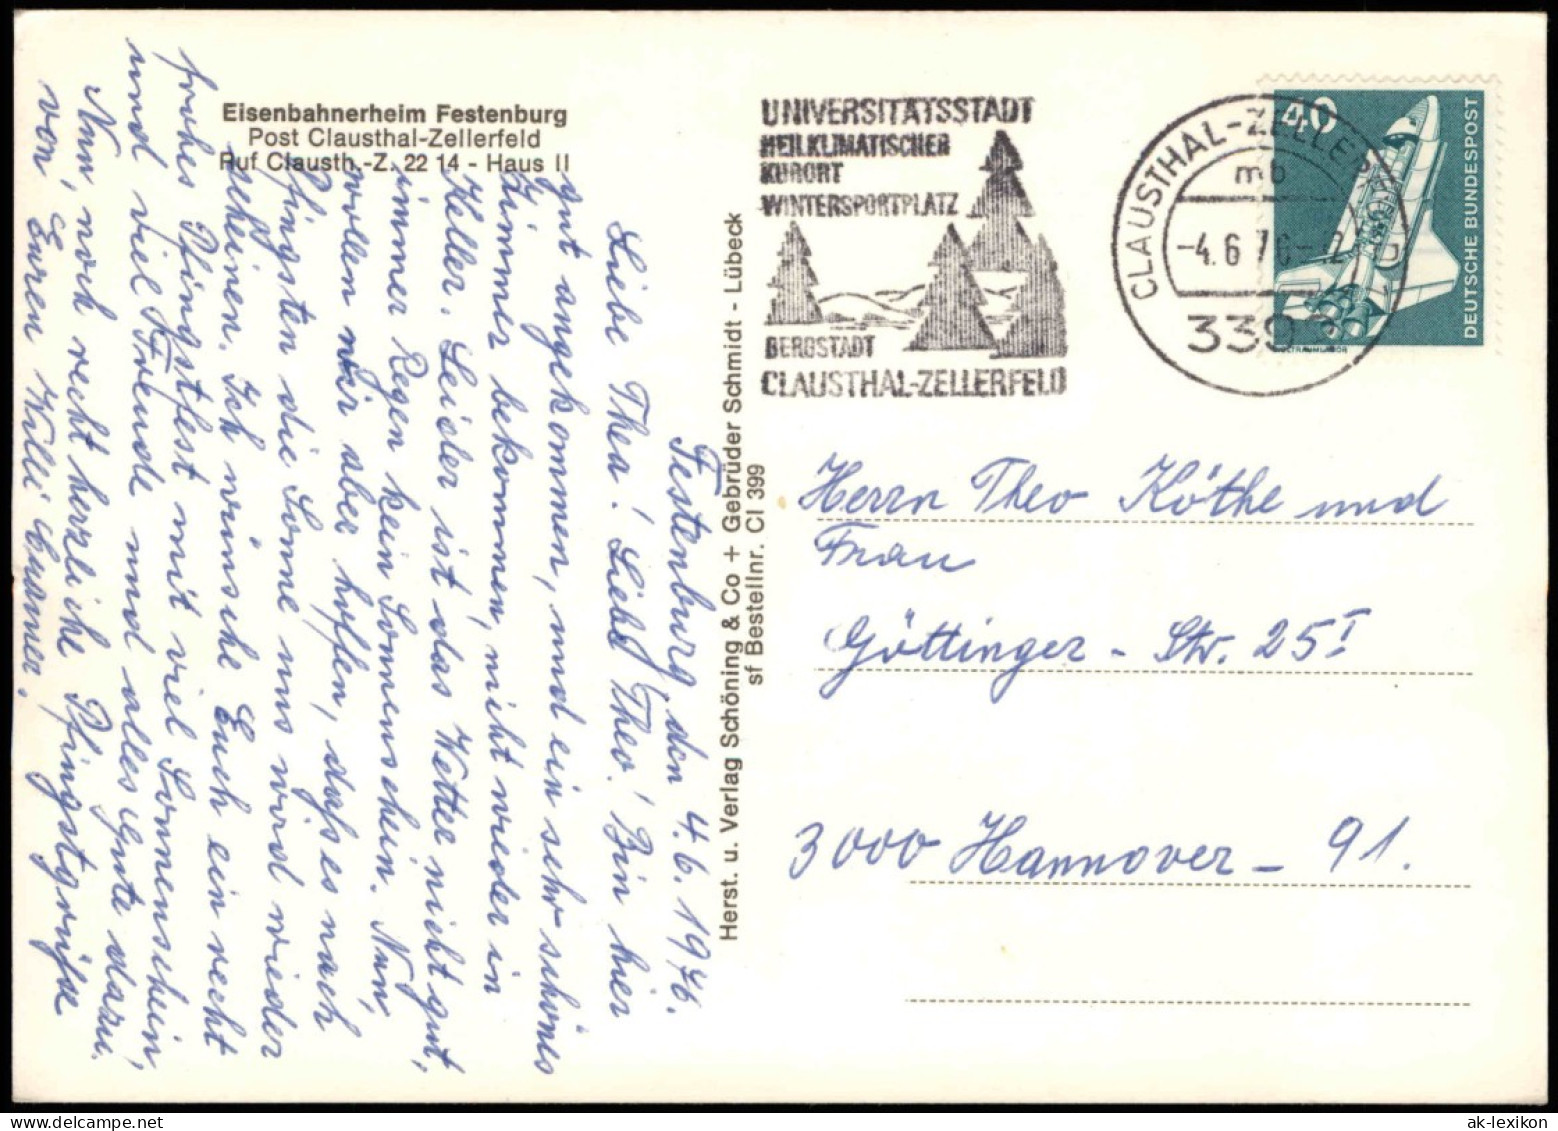 Eisenbahnerheim Festenburg
Post Clausthal-Zellerfeld
Ruf Clausth.-Z. 22 14 - Haus II
Festenburg, den 4.6.1976.
Liebe Thea! Lieber Theo! Bin hier
gut angekommen, und ein sehr schönes
Zimmer bekommen, nicht wieder in
Keller. Leider ist das Wetter nicht gut,
immer Regen kein Sonnenschein. Nun,
wollen wir aber hoffen, daß es nach
Pfingsten die Sonne uns wird wieder
scheinen. Ich wünsche Euch ein recht
frohes Pfingstfest mit viel Sonnenschein,
und viel Freude und alles Gute dazu.
Nun, noch recht herzliche Pfingstgrüße
von Euren Willi
Herst. u. Verlag Schöning & Co + Gebrüder Schmidt - Lübeck
sf Bestellnr. Cl 399
UNIVERSITÄTSSTADT
HEILKLIMATISCHER
KURORT
WINTERSPORTPLATZ
BERGSTADT
CLAUSTHAL-ZELLERFELD
CLAUSTHAL-ZELLERFELD 1
mb
-4.6.76-12
339
40
DEUTSCHE BUNDESPOST
WELTRAUMLABOR
Herrn Theo Köthe und
Frau
Göttinger - Str. 25 I
3000 Hannover - 91.
ak-lexikon